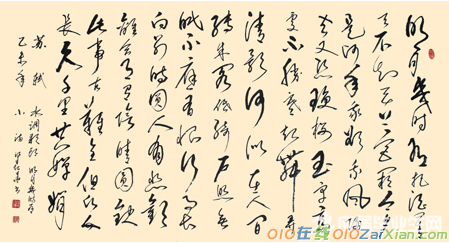 明月几时有把酒问
天不知天上宫阙今夕
是何年我欲乘风归
去又恐琼楼玉宇高
处不胜寒起舞弄
清影何似在人间
转朱阁低绮户照无
眠不应有恨何事长
向别时圆人有悲欢
离合月有阴晴圆缺
此事古难全但愿人
长久千里共婵娟
苏轼 水调歌头 明月几时有
乙未年 小满
010在线010ZaiXian.com